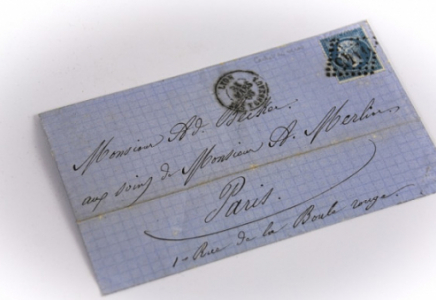 Monsieur Ad.
aux soins de Monsieur A. Merlin,
Paris.
1 - Rue de la Boule rouge.